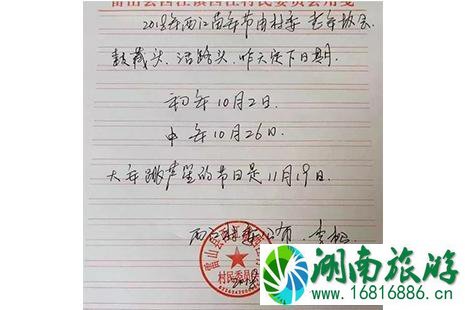 雷山县西江镇西江村民委员会用笺
2018年西江苗年节由村委 老年协会
鼓藏头、活路头、昨天定下日期.
初年10月2日.
中年10月26日.
大年跳芦笙的节日是11月19日.
村民委员会
湖南旅游
www.16816886.cn